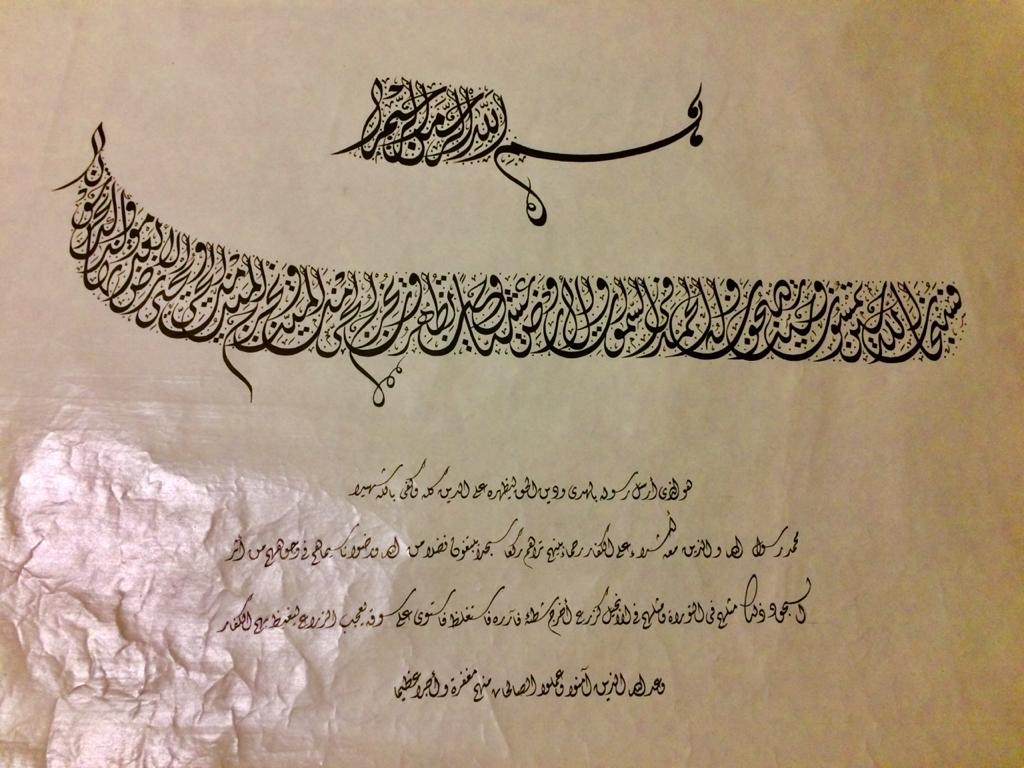 بسم الله الرحمن الرحيم
فسبحان الله حين تمسون وحين تصبحون وله الحمد في السموات والأرض وعشيا وحين تظهرون يخرج الحي من الميت ويخرج الميت من الحي ويحيي الأرض بعد موتها وكذلك تخرجون
هو الذي أرسل رسوله بالهدى ودين الحق ليظهره على الدين كله وكفى بالله شهيدا
محمد رسول الله والذين معه أشداء على الكفار رحماء بينهم تراهم ركعا سجدا يبتغون فضلا من الله ورضوانا سيماهم في وجوههم من أثر
السجود ذلك مثلهم في التوراة ومثلهم في الإنجيل كزرع أخرج شطأه فآزره فاستغلظ فاستوى على سوقه يعجب الزراع ليغيظ بهم الكفار
وعد الله الذين آمنوا وعملوا الصالحات منهم مغفرة وأجرا عظيما